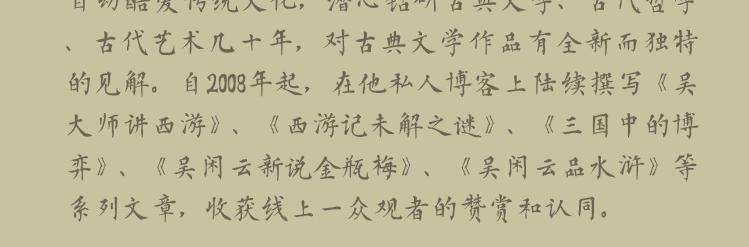 自幼酷爱传统文化，潜心钻研古典文学、古代哲学
、古代艺术几十年，对古典文学作品有全新而独特
的见解。自2008年起，在他私人博客上陆续撰写《吴
大师讲西游》、《西游记未解之谜》、《三国中的博
弈》、《吴闲云新说金瓶梅》、《吴闲云品水浒》等
系列文章，收获线上一众观者的赞赏和认同。